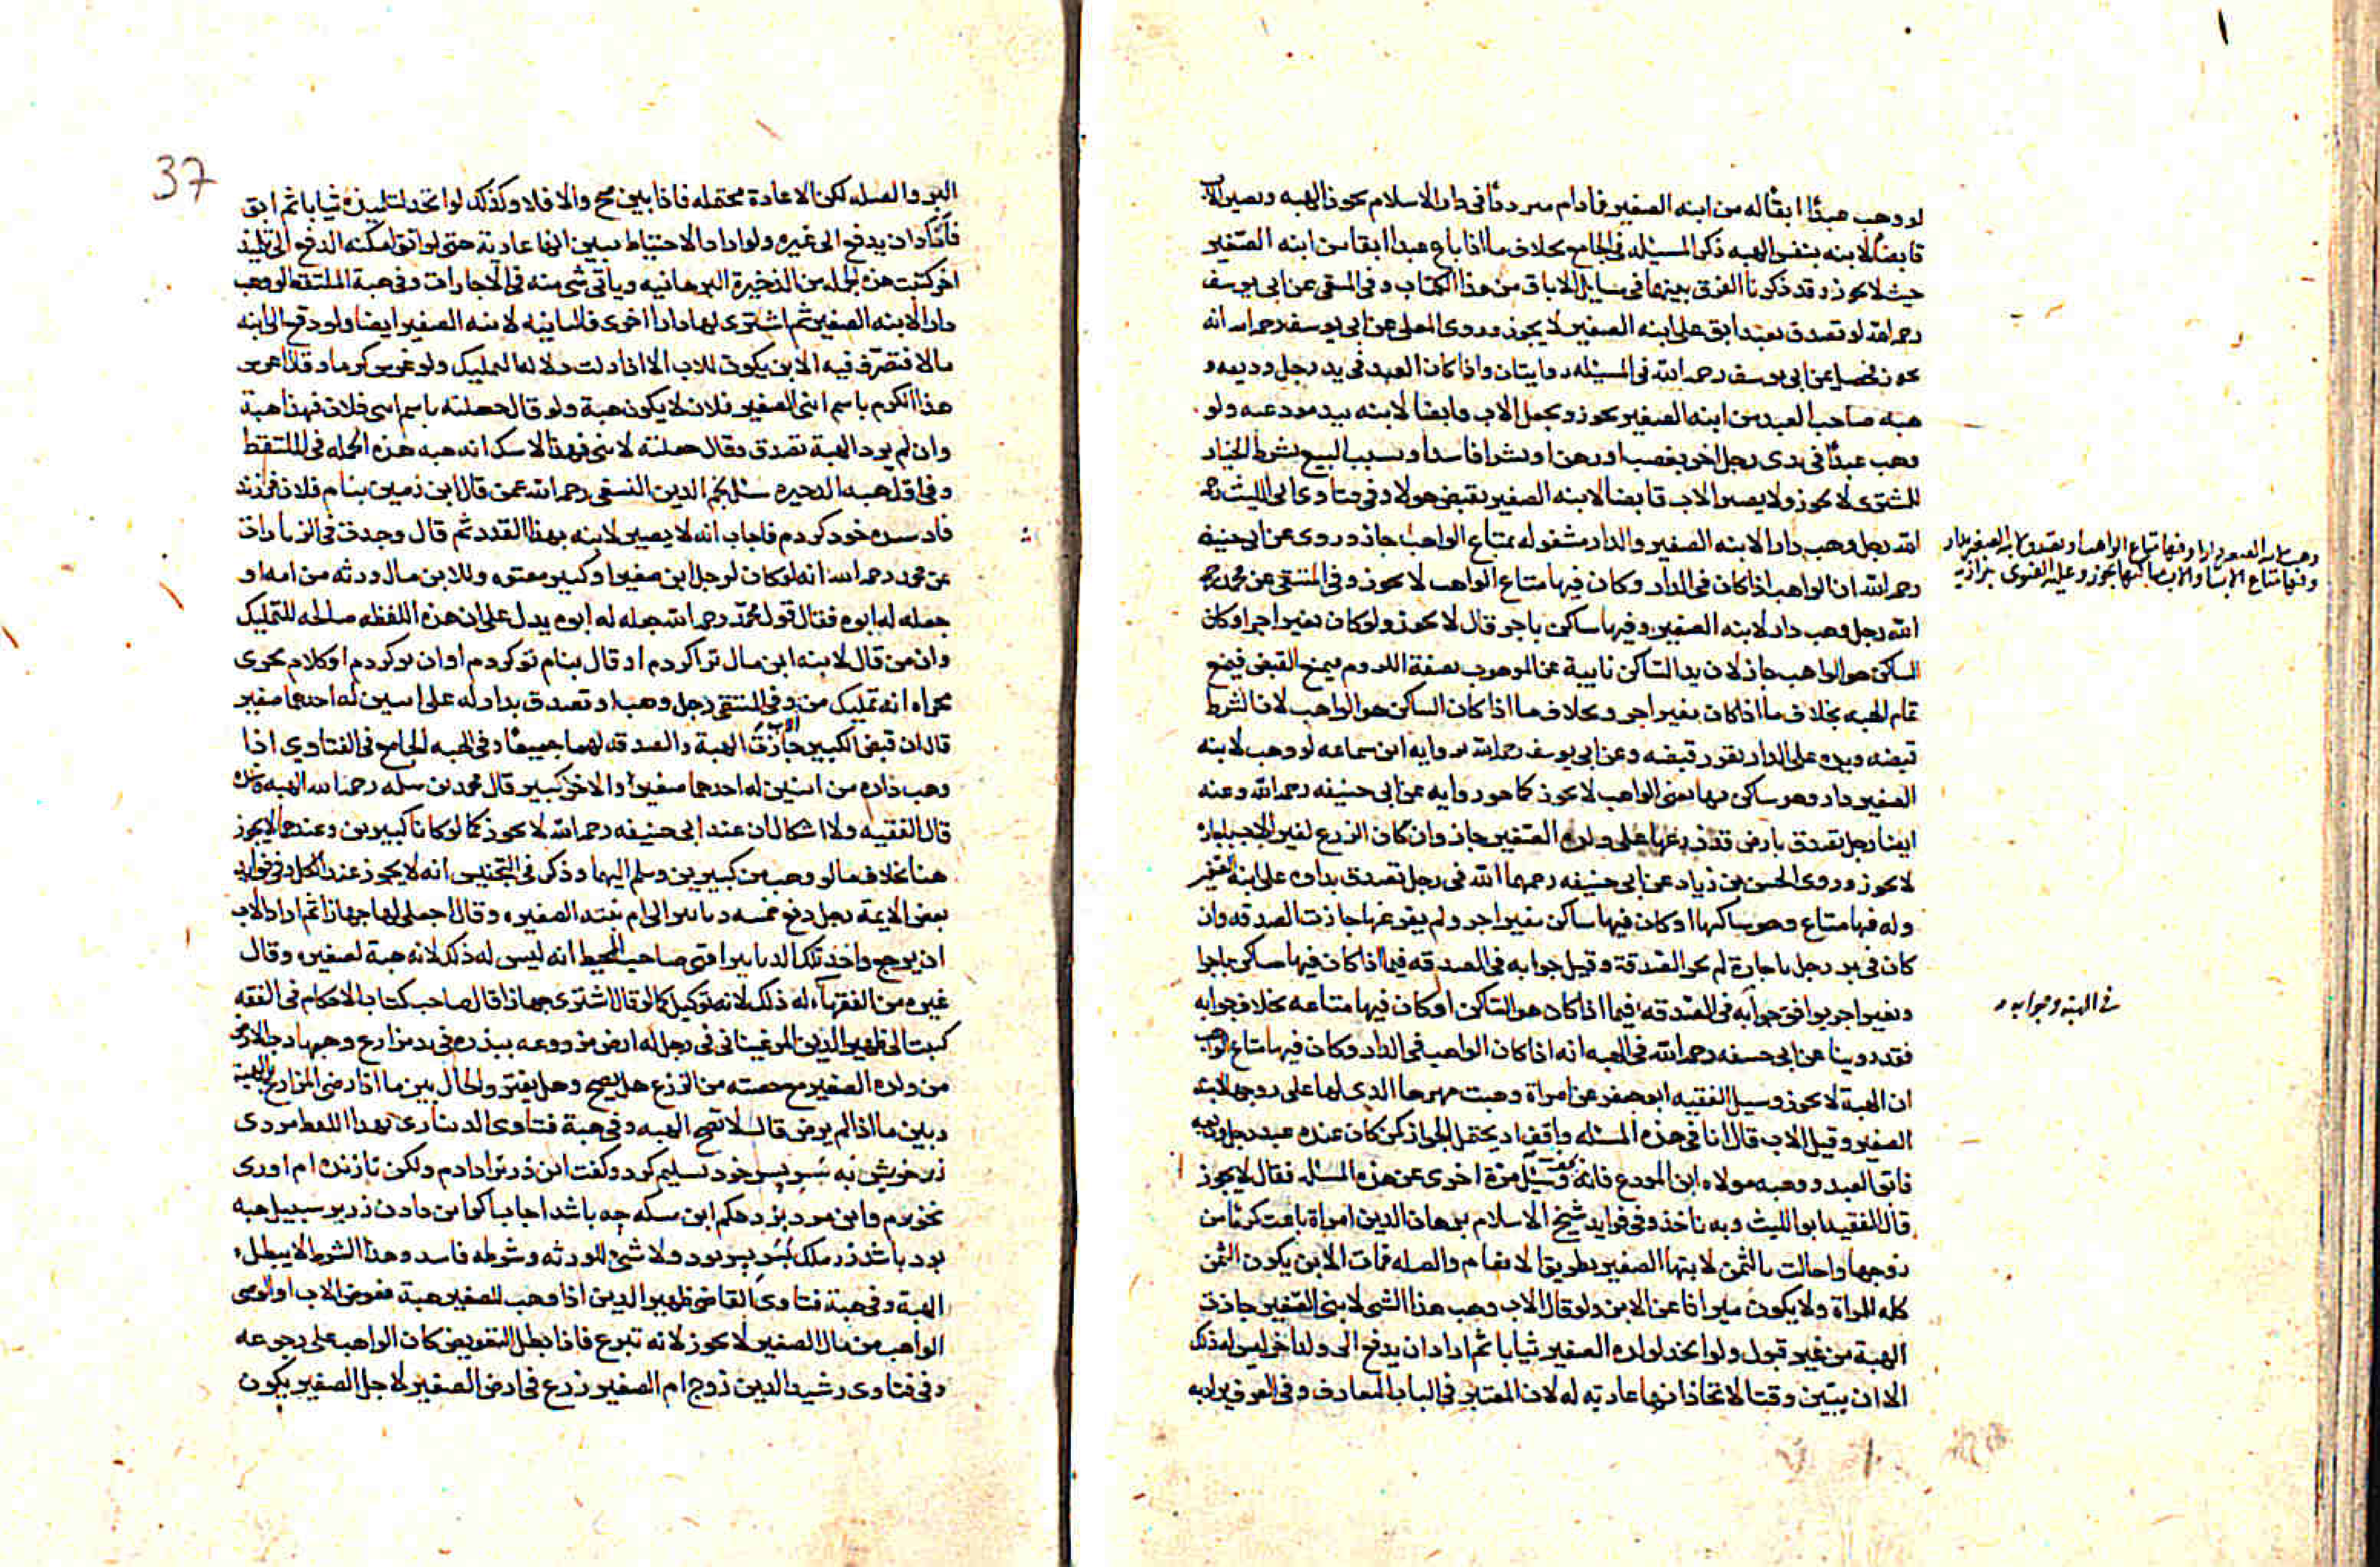 ١
لو وهب عبدًا ابقًا له من ابنه الصغير فما دام مترددًا فى دار الاسلام تجوز الهبه ويصير الاب
قابضًا لابنه بنفس الهبه ذكر المسئله فى الجامع بخلاف ما اذا باع عبدا ابقا من ابنه الصّغير
حيث لا يجوز وقد ذكرنا الفرق بينهما فى مسايل الاباق من هذا الكتاب وفى المنتقى عن ابى يوسف
رحمه الله لو تصدق بعبد ابق على ابنه الصغير لا يجوز وروى المعلى عن ابى يوسف رحمه الله انه
يجوز فحصل عن ابى يوسف رحمه الله فى المسئله روايتان واذا كان العبد فى يد رجل وديعه و
هبه صاحب العبد من ابنه الصغير يجوز ويجعل الاب قابضا لابنه بيد مودعه ولو
وهب عبدًا فى يدى رجل اخر بغصب او رهن او بشرا فاسد او بسبب البيع بشرط الخيار
للمشترى لا يجوز ولا يصير الاب قابضا لابنه الصغير بقبض هولا وفى فتاوى ابى الليث رحمه
الله رجل وهب دارا لابنه الصغير والدار مشغوله بمتاع الواهب جاز وروى عن ابى حنيفه
رحمه الله ان الواهب اذا كان فى الدار وكان فيها متاع الواهب لا يجوز وفى المنتقى عن محمد رحمه
الله رجل وهب دار لابنه الصغير وفيها ساكن باجر قال لا يجوز ولو كان بغير اجر او كان
الساكن هو الواهب جاز لان يد الساكن نايبة عن الموهوب بصفة اللزوم يمنع القبض فيمنع
تمام الهبه بخلاف ما اذا كان بغير اجر وبخلاف ما اذا كان الساكن هو الواهب لان الشرط
قبضه ويده على الدار تقرر قبضه وعن ابى يوسف رحمه الله بروايه ابن سماعه لو وهب لابنه
الصغير دار وهو ساكن فيها يعنى الواهب لا يجوز كما هو روايه عن ابى حنيفه رحمه الله وعنه
ايضا رجل تصدق بارض قد زرعها على ولده الصّغير جاز وان كان الزرع لغير الاب باجاره
لا يجوز وروى الحسن بن زياد عن ابى حنيفه رحمهما الله فى رجل تصدق بداره على ابنه الصغير
وله فيها متاع وهو ساكنها او كان فيها ساكن بغير اجر ولم يفرغها جازت الصدقه وان
كان فى يد رجل باجارة لم تجز الصّدقة وقيل جوابه فى الصدقه فيما اذا كان فيها ساكن باجر
وبغير اجر يوافق جوابه فى الصّدقه فيما اذا كان هو الساكن او كان فيها متاعه بخلاف جوابه
فقد روينا عن ابى حنيفه رحمه الله فى الهبه انه اذا كان الواهب فى الدار وكان فيها متاع الواهب
ان الهبة لا تجوز وسيل الفقيه ابو جعفر عن امراة وهبت مهرها الذى لها على زوجها لابنه
الصغير وقبل الاب قال انا فى هذه المسئله واقف اذ يحتمل الجواز كمن كان عنده عبد رجل وديعه
فابق العبد ووهبه مولاه ابن المودع فانه وسيل مرّة اخرى عن هذه المسئله فقال لا يجوز
قال الفقيه ابو الليث وبه ناخذ وفى فوايد شيخ الاسلام برهان الدين امراة باعت كرمًا من
زوجها واحالت بالثمن لابنها الصغير بطريق الانعام والصله فمات الابن يكون الثمن
كله للمراة ولا يكون ميراثا عن الابن ولو قال الاب وهبت هذا الشى لابنى الصّغير جازت
الهبة من غير قبول ولو اتخذ لولده الصغير ثيابا ثم اراد ان يدفع الى ولد اخر ليس له ذلك
الا ان يبيّن وقت الاتخاذ انها عاريه له لان المعتبر فى الباب التعارف وفى العرف يراد به
وفيها متاع الابن او الاب ساكنها يجوز وعليه الفتوى بزازيه
فى الهبه وجوابه
37
البر والصله لكن الاعادة محتمله فاذا بين صح والا فلا وكذلك لو اتخذ لتلميذه ثيابا ثم ابق
فاراد ان يدفع الى غيره ولو اراد الاحتياط يبين انها عارية حتى لو ابق امكنه الدفع الى تلميذ
اخر كتبت هذه الجمله من الذخيرة البرهانيه وياتى شى منه فى الاجارات وفى هبة الملتقط لو وهب
دارا لابنه الصغير ثم اشترى بها دارا اخرى فالثانيه لابنه الصغير ايضا ولو دفع الى ابنه
مالا فتصرّف فيه الابن يكون للاب الا اذا دلت دلالة التمليك ولو غرس كرما وقال اغرس
هذا الكرم باسم ابنى الصغير فلان لا يكون هبة ولو قال جعلته باسم ابنى فلان فهذا هبة
وان لم يرد الهبة تصدق وقال جعلته لابنى فهذا لا شك انه هبه هذه الجمله فى الملتقط
وفى اول هبه الذخيره سئل نجم الدين النسفى رحمه الله عمن قال اين زمين بنام فلان فرزند
فاجاب انه لا يصير لابنه بهذا القدر ثم قال وجدت فى الزيادات
عن محمد رحمه الله انه لو كان لرجل ابن صغير او كبير معتوه وللابن مال ورثه من امه او
جعله له ابوه فقال قول محمّد رحمه الله جعله له ابوه يدل على ان هذه اللفظه صالحه للتمليك
وان من قال لابنه اين مال ترا كردم او قال بنام تو كردم او ان تو كردم او كلام يجرى
مجراه انه تمليك منه وفى المنتقى رجل وهب او تصدق بداره على ابنين له احدهما صغير
قال ان قبض الكبير جازت الهبة والصدقه لهما جميعًا وفى الهبه الجامع فى الفتاوى اذا
وهب داره من ابنين له احدهما صغير والاخر كبير قال محمد بن سلمه رحمه الله الهبه
قال الفقيه ولا اشكال ان عند ابى حنيفه رحمه الله لا يجوز كما لو كانا كبيرين وعندهما لا يجوز
هنا بخلاف ما لو وهب من كبيرين وسلم اليهما وذكر فى التجنيس انه لا يجوز عند الكل وفى فوايد
بعض الايمة رجل دفع خمسه دنانير الى ام بنته الصغيره وقال اجعلى لها جهازا ثم اراد الاب
ان يرجع واخذ تلك الدنانير افتى صاحب المحيط انه ليس له ذلك لانه هبة لصغيره وقال
غيره من الفقهاء له ذلك لانه توكيل كما لو قال اشترى جهازا قال صاحب كتاب الاحكام فى الفقه
كتبت الى ظهير الدين المرغينانى فى رجل له ارض مزروعه ببذره فى يد مزارع وهبها رب الارض
من ولده الصغير مع حصته من الزرع هل يصح وهل يفتر والحال بين ما اذا رضى المزارع بالهبة
وبين ما اذا لم يرض قال لا تصح الهبه وفى هبة فتاوى الدينارى بهذا اللفظ مردى
زر خويش به پسر خود تسليم كرد وكفت اين زر ترا دادم ولكن تا زنده ام اورى
بود باشد زر ملك پسر بود ولا شئ للورثه وشرطه فاسد وهذا الشرط لا يبطل
الهبة وفى هبة فتاوى القاضى ظهير الدين اذا وهب للصغير هبة فعوض الاب او الوصى
الواهب من مال الصغير لا يجوز لانه تبرع فاذا بطل التعويض كان الواهب على رجوعه
وفى فتاوى رشيد الدين زوج ام الصغير زرع فى ارض الصغير لاجل الصغير يكون